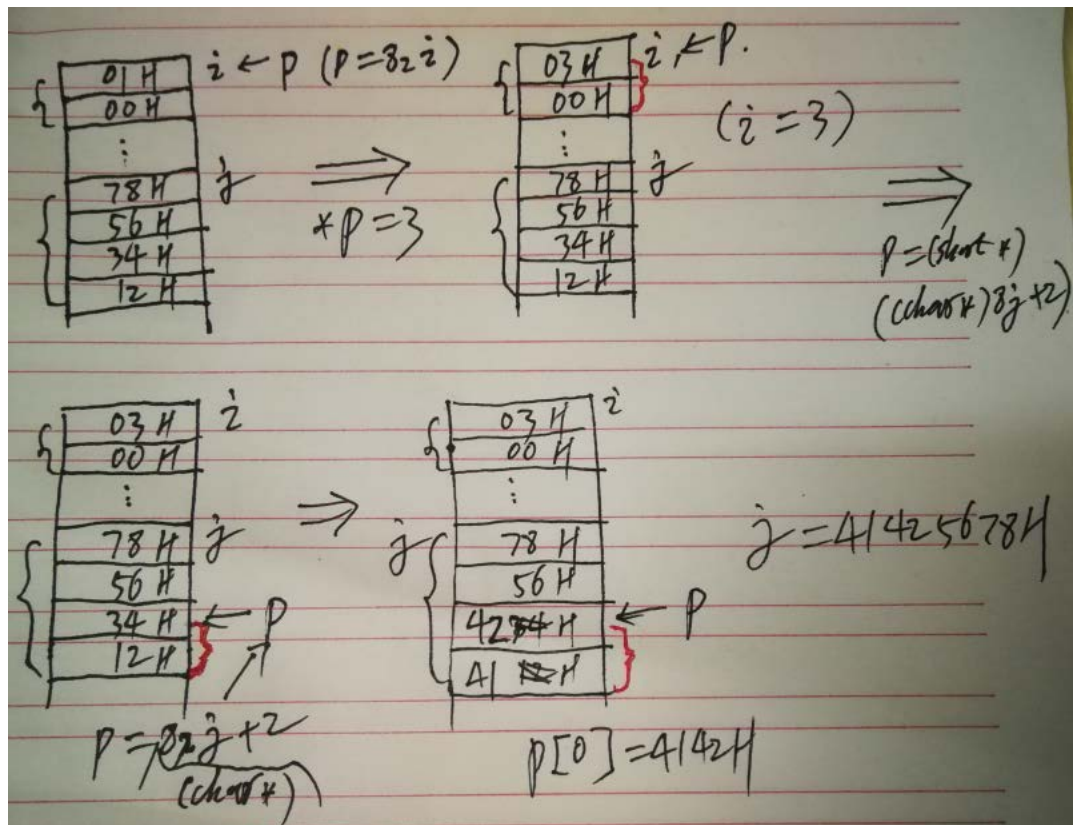 01H i ← p (p=&i)
00H
⋮
78H j
56H
34H
12H
⇒
*p=3
03H i, ← p.
00H
(i=3)
⋮
78H j
56H
34H
12H
⇒
p=(short *)
((char*)&j+2)
03H i
00H
⋮
78H j
56H
34H ← p
12H
p=&j+2
(char*)
⇒
03H i
00H
⋮
j 78H
56H
42H ← p
41H
p[0]=4142H
j=41425678H